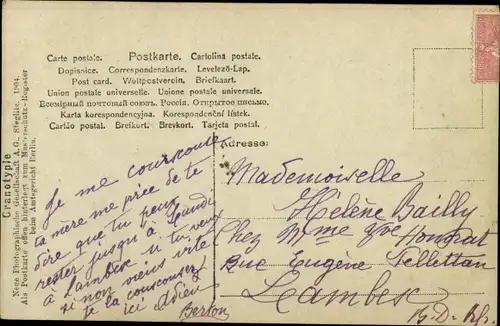 Carte postale. Postkarte. Cartolina postale.
Dopisnice. Correspondenzkarte. Levelező-Lap.
Post card. Weltpostverein. Brefkaart.
Union postale universelle. Unione postale universale.
Всемірный почтовый союзъ. Россія. Открытое письмо.
Karta korespondencyjna. Korespondenční lístek.
Cartão postal. Brefkort. Brevkort. Tarjeta postal.
Granotypie
Neue Photographische Gesellschaft A.G., Steglitz 1904.
Als Postkarte offen hinterlegt zum Musterschutz-Register
beim Amtsgericht Berlin.
Adresse:
Je me courrouce
ta mère me prie de te
dire que tu peux
rester jusqu'à Lundi
à Lambesc si tu veux
si non viens vite
je la courroucez
ici Adieu
Berton
Mademoiselle
Helène Bailly
Chez Mme Vve Honorat
Rue Eugène Pellettan
Lambesc
B.-D.-Rh.